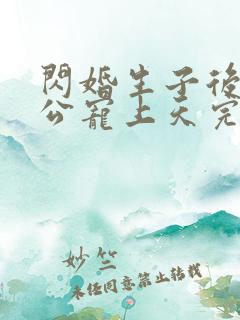 閃婚生子後
公寵上天完
妙竺
未經同意禁止轉載